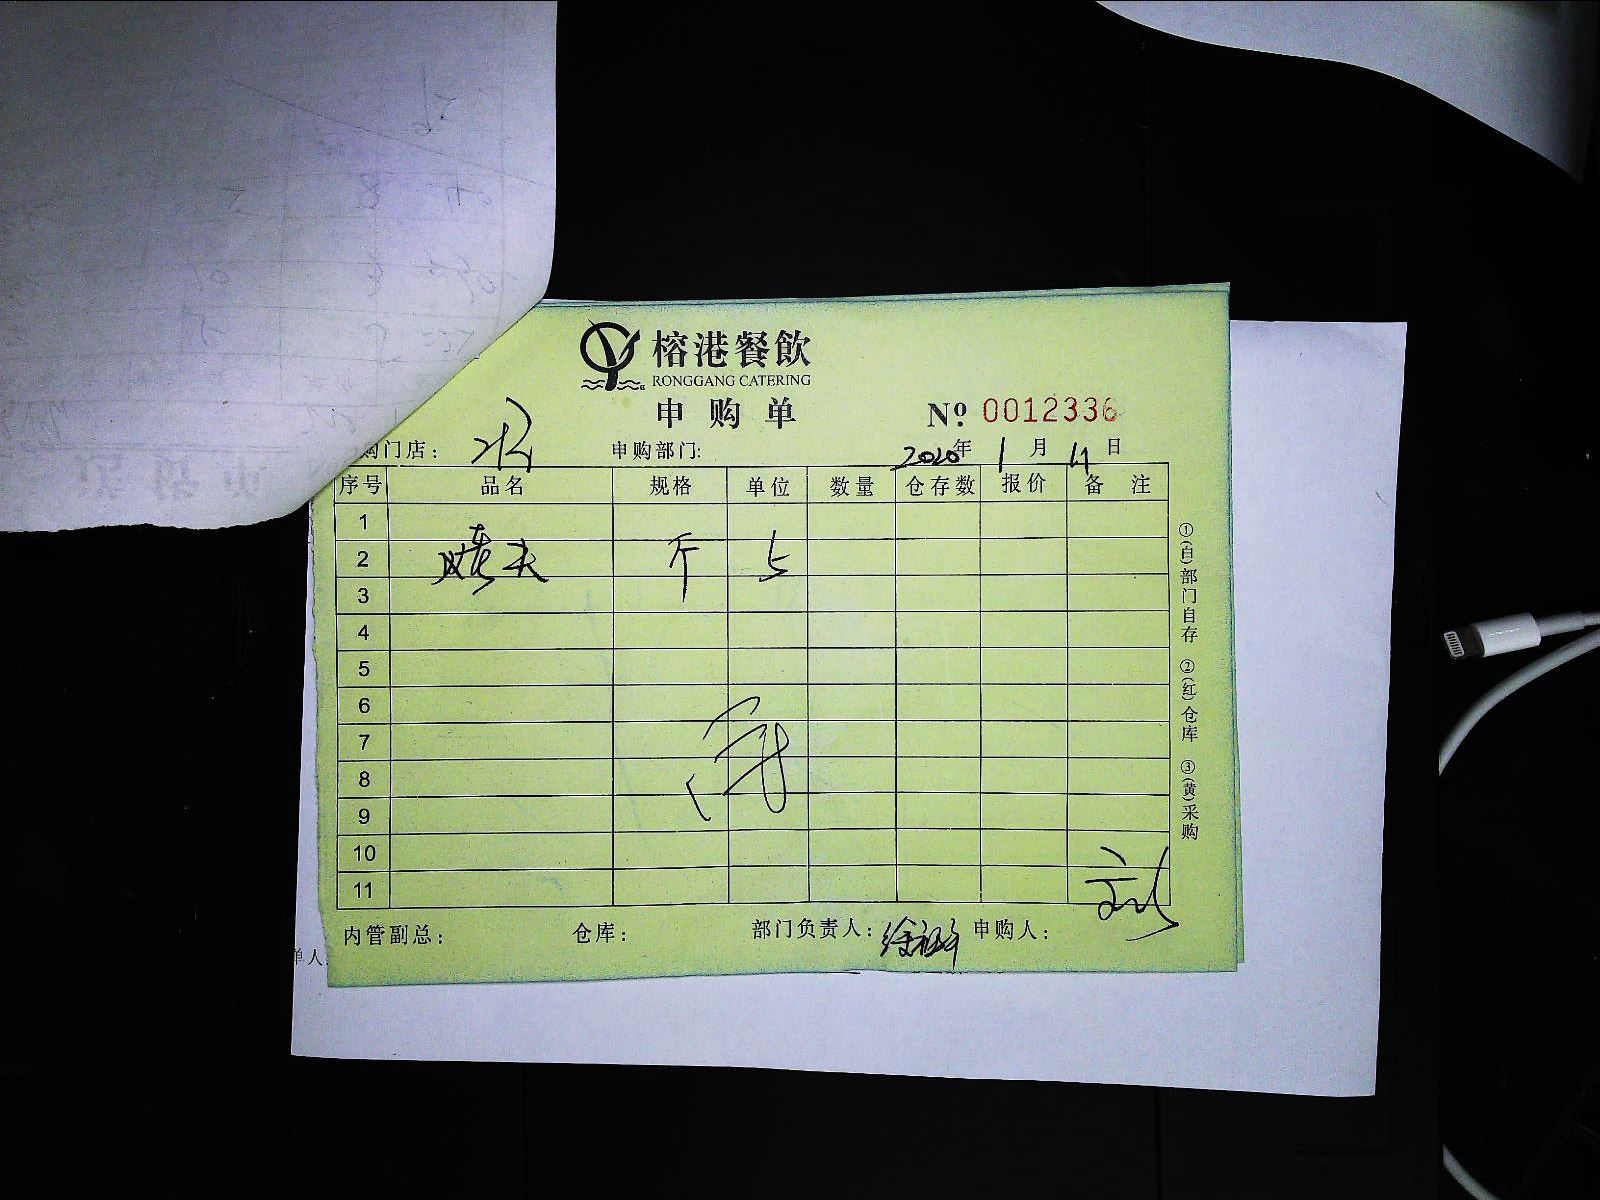 榕港餐飲
RONGGANG CATERING
申购单
Nº 0012336
购门店: 申购部门: 2020年1月11日
序号 品名 规格 单位 数量 仓存数 报价 备注
1
2 斤 5
3
4
5
6
7
8
9
10
11
内管副总: 仓库: 部门负责人: 申购人:
单人:
①(白)部门自存 ②(红)仓库 ③(黄)采购